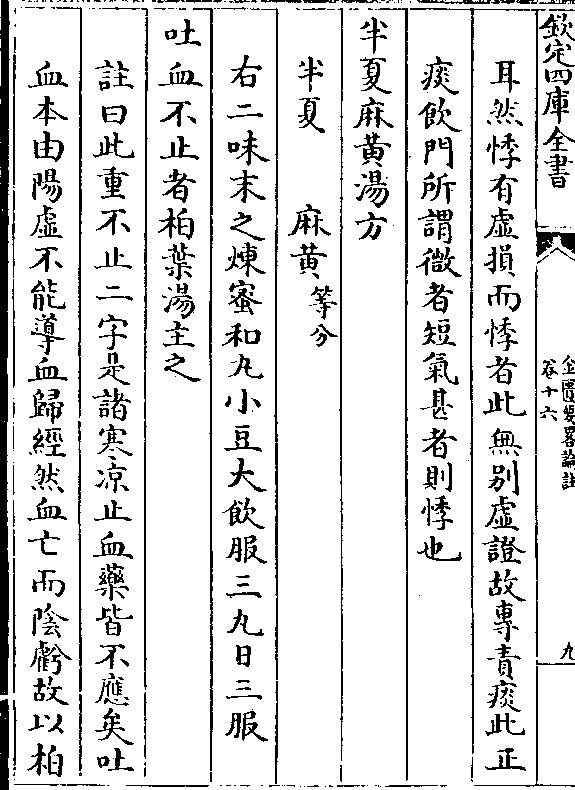 欽定四庫全書
金匱要略論註
卷十六
九
耳然悸有虛損而悸者此無別虛證故專責痰此正
痰飲門所謂微者短氣甚者則悸也
半夏麻黃湯方
半夏　麻黃等分
右二味末之煉蜜和丸小豆大飲服三丸日三服
吐血不止者柏葉湯主之
註曰此重不止二字是諸寒凉止血藥皆不應矣吐
血本由陽虛不能導血歸經然血亡而陰虧故以柏